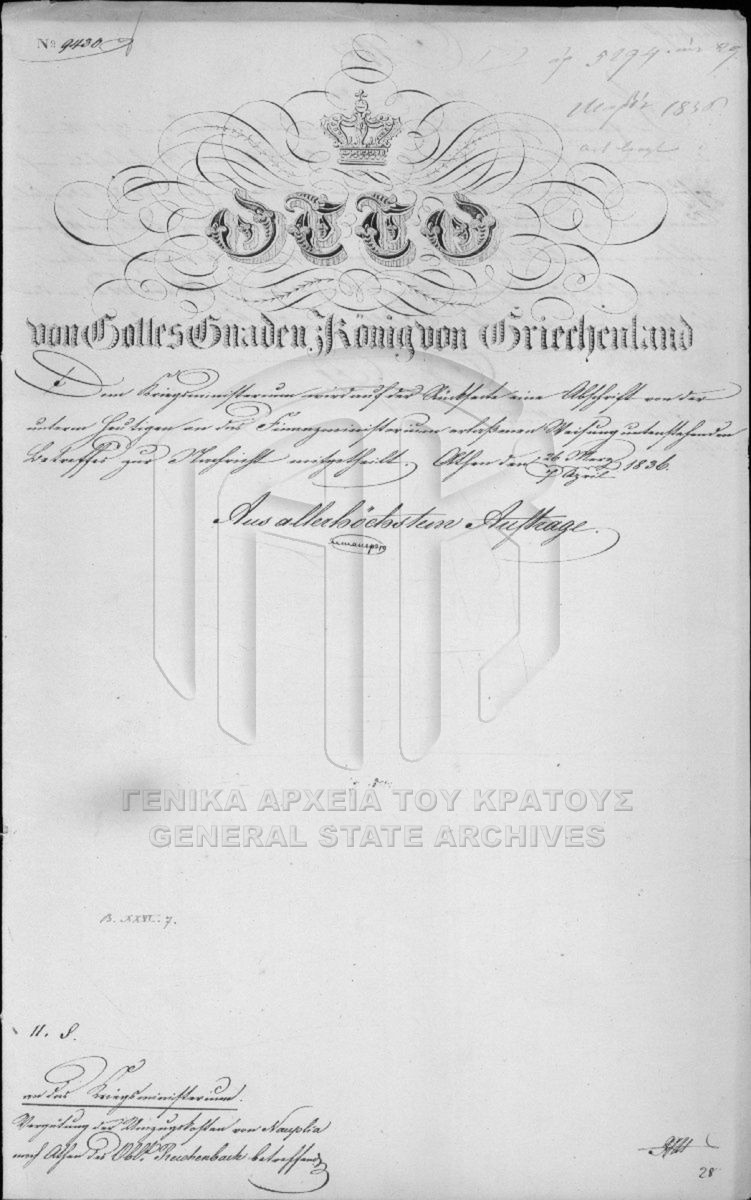 No. 9430.
ἀρ 5194
1836
OTTO
von Gottes Gnaden König von Griechenland
Dem Kriegsministerium wird auf der Rückseite eine Abschrift von der
unterm Heutigen an das Finanzministerium erlaßenen Weisung untenstehenden
Betreffes zur Nachricht mitgetheilt. Athen den 26. Merz / 7 April 1836.
Aus allerhöchstem Auftrage.
ΓΕΝΙΚΑ ΑΡΧΕΙΑ ΤΟΥ ΚΡΑΤΟΥΣ
GENERAL STATE ARCHIVES
B. XXVI. 7.
II. S.
an das Kriegsministerium.
Vergütung der Umzugskosten von Nauplia
nach Athen des Oblt. Reichenback betreffend
28